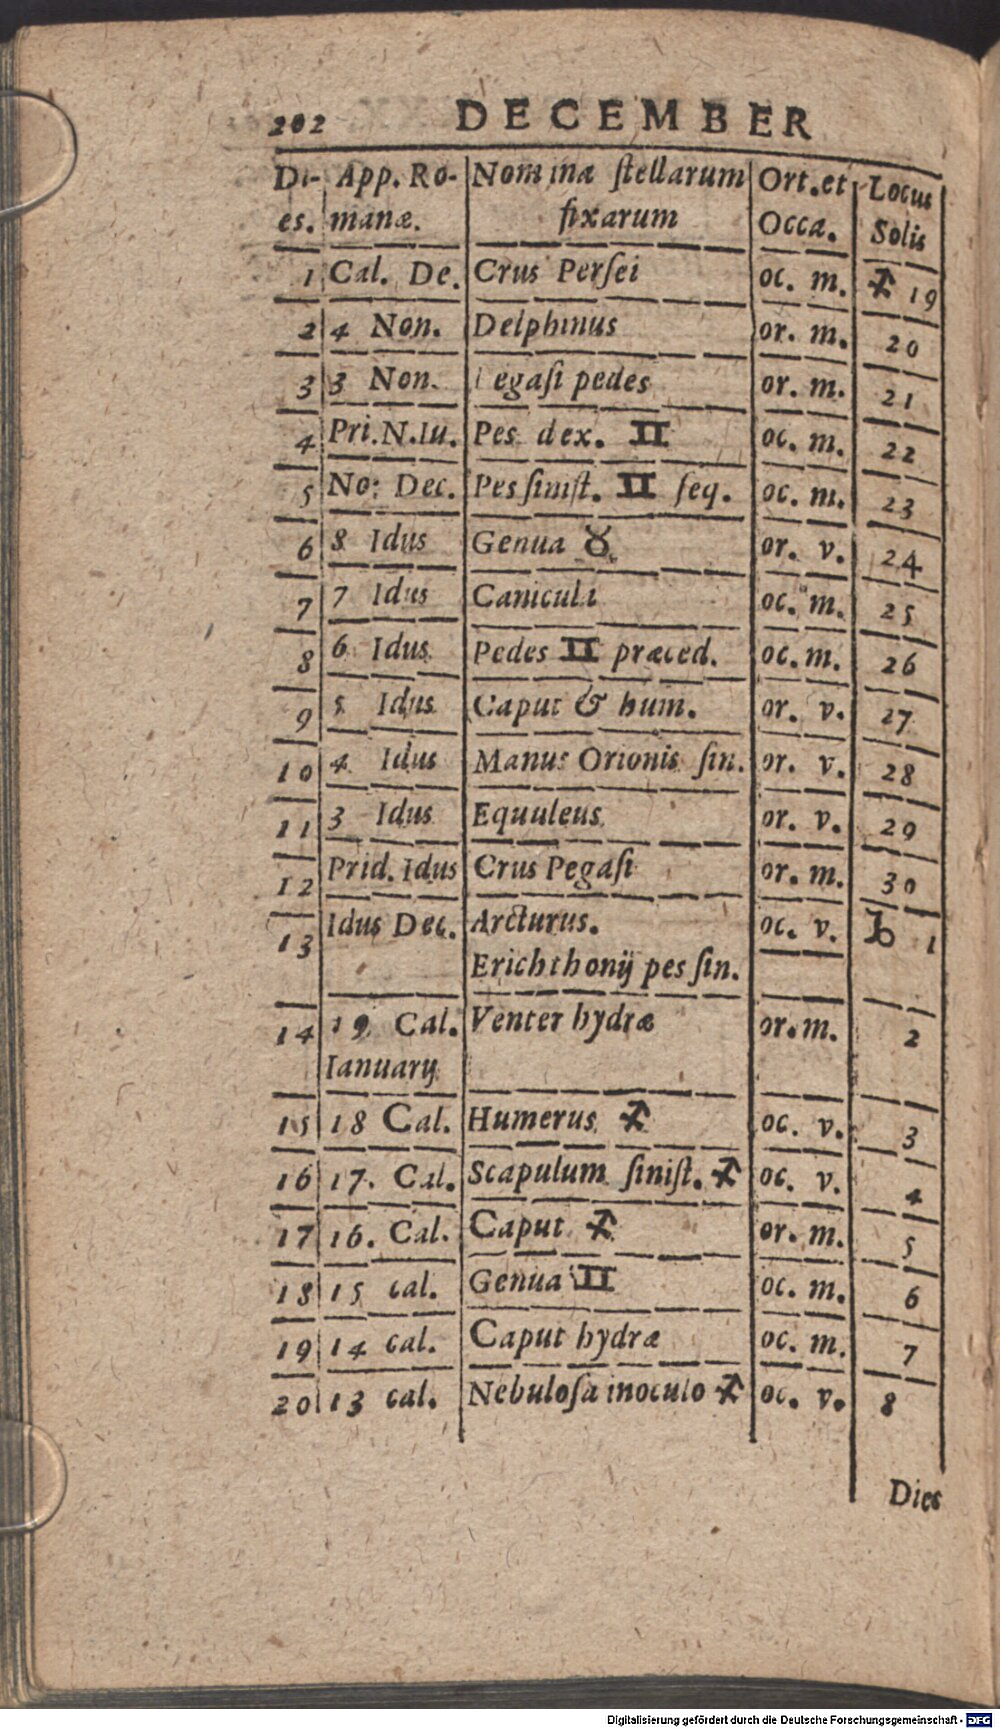 202 DECEMBER
Di- App. Ro- Nomina ſtellarum Ort. et Locus
es. manæ. fixarum Occa. Solis
1 Cal. De. Crus Perſei oc. m. ♐ 19
2 4 Non. Delphinus or. m. 20
3 3 Non. egaſi pedes or. m. 21
4 Pri. N. Iu. Pes dex. ♊ oc. m. 22
5 No: Dec. Pes ſiniſt. ♊ ſeq. oc. m. 23
6 8 Idus Genua ♉ or. v. 24
7 7 Idus Canicula oc. m. 25
8 6 Idus Pedes ♊ præced. oc. m. 26
9 5 Idus Caput & hum. or. v. 27
10 4 Idus Manus Orionis ſin. or. v. 28
11 3 Idus Equuleus or. v. 29
12 Prid. Idus Crus Pegaſi or. m. 30
13 Idus Dec. Arcturus. oc. v. ♑ 1
Erichthonij pes ſin.
14 19 Cal. Venter hydræ or. m. 2
Ianuarij
15 18 Cal. Humerus ♐ oc. v. 3
16 17. Cal. Scapulum ſiniſt. ♐ oc. v. 4
17 16. Cal. Caput ♐ or. m. 5
18 15 cal. Genua ♊ oc. m. 6
19 14 cal. Caput hydræ oc. m. 7
20 13 cal. Nebuloſa in oculo ♐ oc. v. 8
Dies
Digitalisierung gefördert durch die Deutsche Forschungsgemeinschaft - DFG